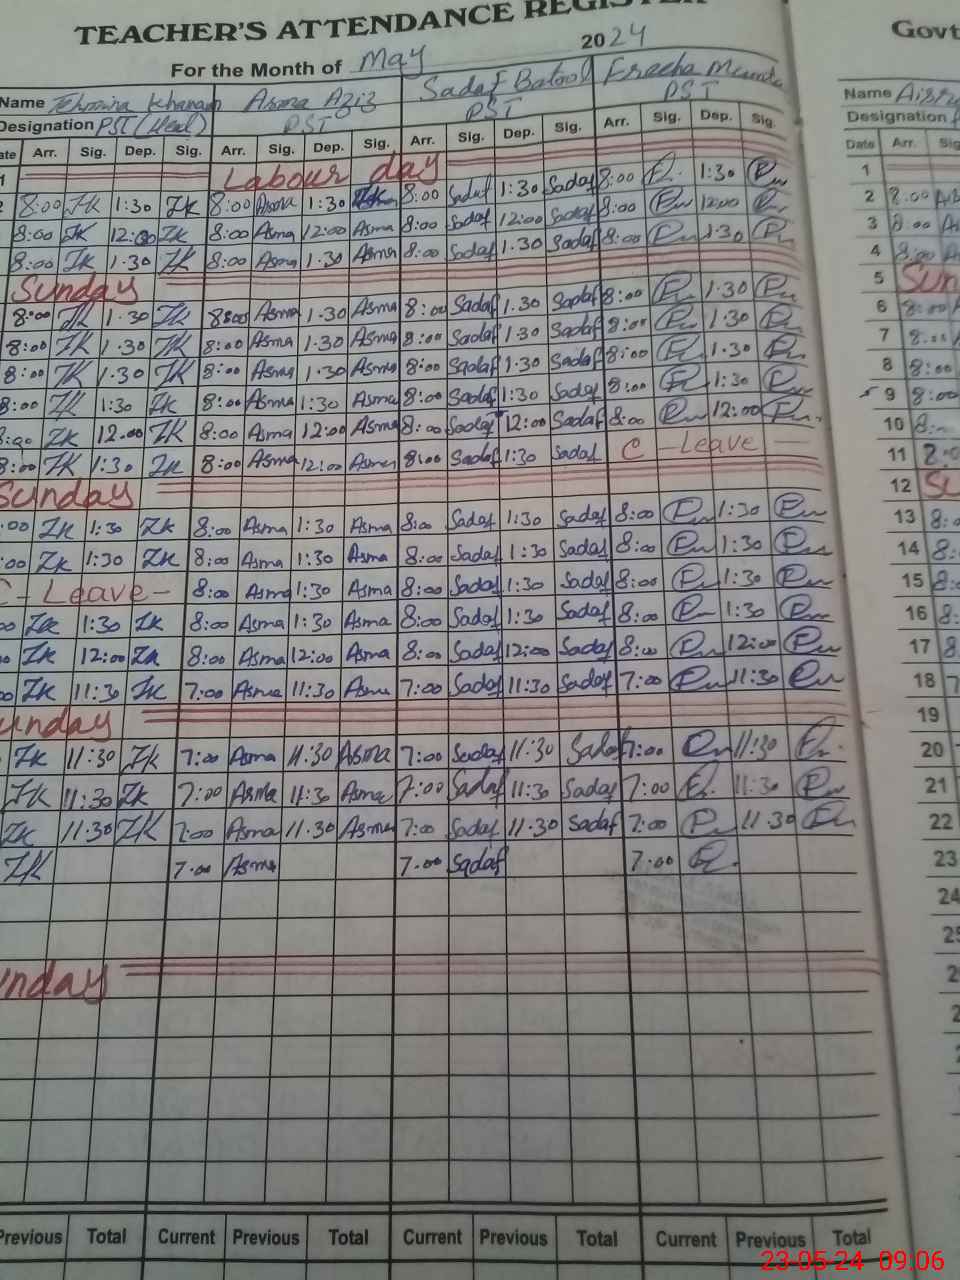 TEACHER'S ATTENDANCE REGISTER
For the Month of May 2024
Govt
Name Tehmina Khanam Asma Aziz Sadaf Batool
Name
Designation PST (Head) PST PST PST
Designation
Arr. Sig. Dep. Sig. Arr. Sig. Dep. Sig. Arr. Sig. Dep. Sig. Arr. Sig. Dep. Sig.
Date Arr.
1 Labour day
1
8:00 ZK 1:30 ZK 8:00 Asma 1:30 8:00 Sadaf 1:30 Sadaf 8:00 1:30
2 8:00
8:00 ZK 12:00 ZK 8:00 Asma 12:00 Asma 8:00 Sadaf 12:00 Sadaf 8:00 12:00
3 8:00
8:00 ZK 1:30 ZK 8:00 Asma 1:30 Asma 8:00 Sadaf 1:30 Sadaf 8:00 1:30
4 8:00
Sunday
5 Sun
8:00 ZK 1:30 ZK 8:00 Asma 1:30 Asma 8:00 Sadaf 1:30 Sadaf 8:00 1:30
6 8:00
8:00 ZK 1:30 ZK 8:00 Asma 1:30 Asma 8:00 Sadaf 1:30 Sadaf 8:00 1:30
7 8:00
8:00 ZK 1:30 ZK 8:00 Asma 1:30 Asma 8:00 Sadaf 1:30 Sadaf 8:00 1:30
8 8:00
8:00 ZK 1:30 ZK 8:00 Asma 1:30 Asma 8:00 Sadaf 1:30 Sadaf 8:00 1:30
9 8:00
8:00 ZK 12:00 ZK 8:00 Asma 12:00 Asma 8:00 Sadaf 12:00 Sadaf 8:00 12:00
10 8:
8:00 ZK 1:30 ZK 8:00 Asma 12:00 Asma 8:00 Sadaf 1:30 Sadaf C - Leave -
11 8:0
Sunday
12 Su
:00 ZK 1:30 ZK 8:00 Asma 1:30 Asma 8:00 Sadaf 1:30 Sadaf 8:00 1:30
13 8:
:00 ZK 1:30 ZK 8:00 Asma 1:30 Asma 8:00 Sadaf 1:30 Sadaf 8:00 1:30
14 8:
C - Leave - 8:00 Asma 1:30 Asma 8:00 Sadaf 1:30 Sadaf 8:00 1:30
15 8:
00 ZK 1:30 ZK 8:00 Asma 1:30 Asma 8:00 Sadaf 1:30 Sadaf 8:00 1:30
16 8:
ZK 12:00 ZK 8:00 Asma 12:00 Asma 8:00 Sadaf 12:00 Sadaf 8:00 12:00
17 8
ZK 11:30 ZK 7:00 Asma 11:30 Asma 7:00 Sadaf 11:30 Sadaf 7:00 11:30
18 7
unday
19
ZK 11:30 ZK 7:00 Asma 11:30 Asma 7:00 Sadaf 11:30 Sadaf 7:00 11:30
20
ZK 11:30 ZK 7:00 Asma 11:30 Asma 7:00 Sadaf 11:30 Sadaf 7:00 11:30
21
ZK 11:30 ZK 7:00 Asma 11:30 Asma 7:00 Sadaf 11:30 Sadaf 7:00 11:30
22
ZK 7:00 Asma 7:00 Sadaf 7:00
23
24
unday
Previous Total Current Previous Total Current Previous Total Current Previous Total
23-05-24 09.06